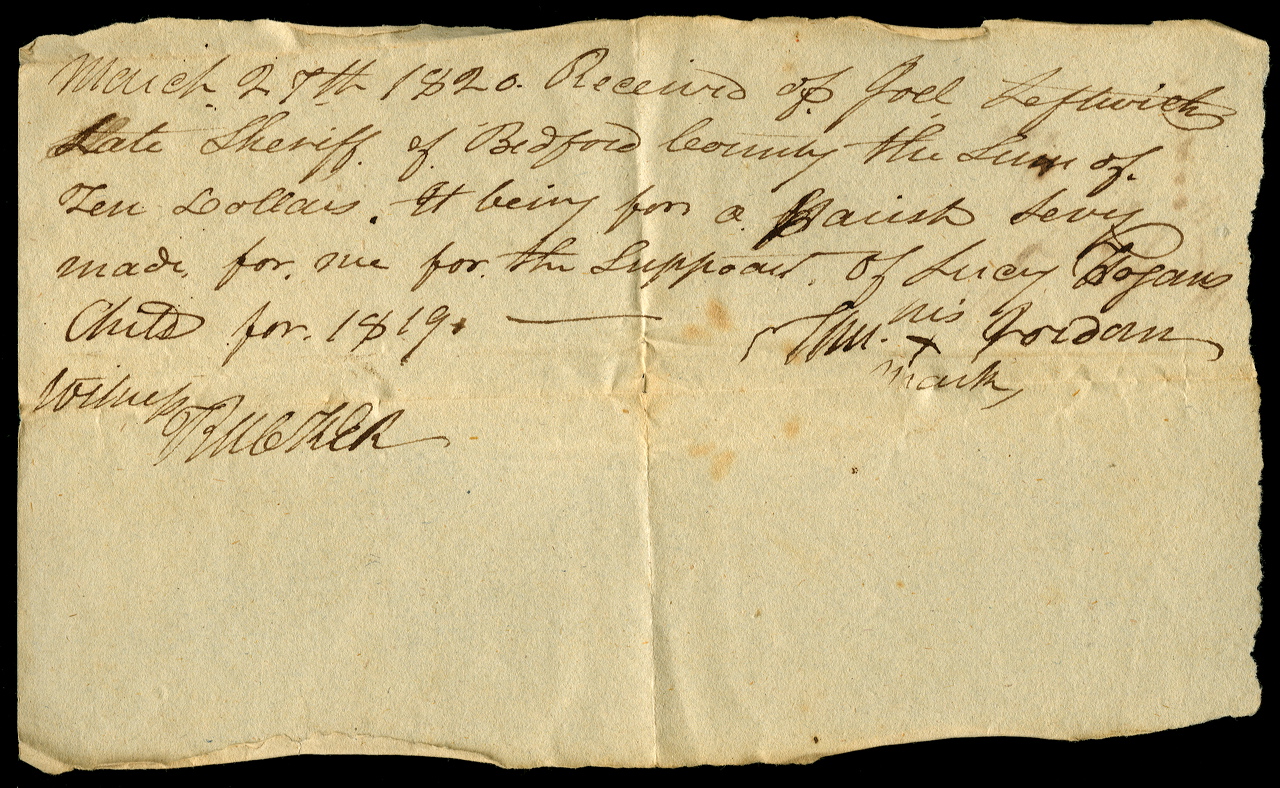 March 27th 1820. Received of Joel Leftwich
Late Sheriff of Bedford County the Sum of
Ten Dollars. It being for a Parish Levy
made for me for the Suppoart of Lucy Hogans
Child for. 1819.
his
Sam. x Jordan
mark
Witness
T RUCKER